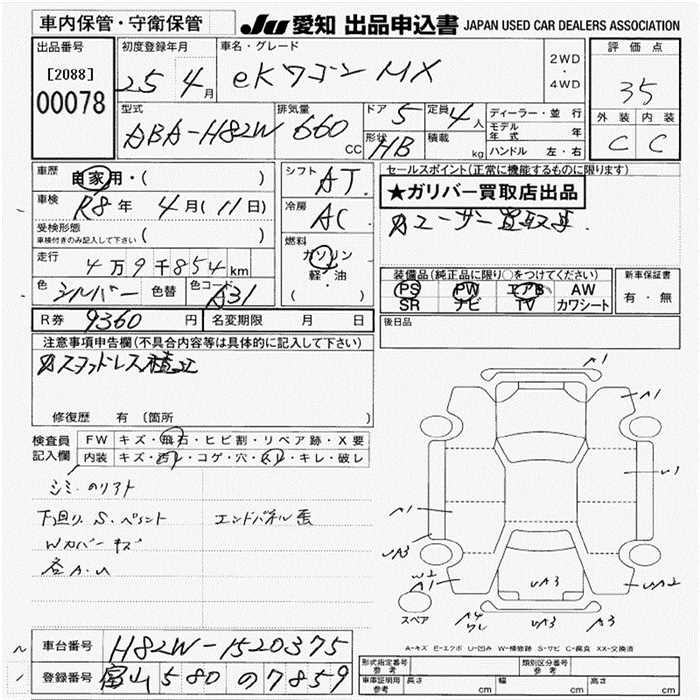 車内保管・守衛保管 JU 愛知 出品申込書 JAPAN USED CAR DEALERS ASSOCIATION
出品番号 初度登録年月 車名・グレード 2WD・4WD 評価点
[2088] 25年4月 eKワゴン MX 35
00078 型式 排気量 ドア 5 定員 4人 ディーラー・並行 外装 内装
ABA-H82W 660 CC 形状 HB 積載 kg モデル年式 年 C C
ハンドル 左・右
車歴 自家用・( ) シフト AT セールスポイント(正常に機能するものに限ります)
車検 R8年 4月(11日) 冷房 AC ★ガリバー買取店出品
受検形態 ( ) ☆ユーザー買取車
車検付きのみ記入して下さい
燃料 ガソリン 軽・油 ( )
走行 4万9千854km 装備品(純正品に限り○をつけてください) 新車保証書
色 シルバー 色替 色コード A31 PS PW エアB AW 有・無
SR ナビ TV カワシート
R券 9360円 名変期限 月 日 後日品
注意事項申告欄(不具合内容等は具体的に記入して下さい)
☆スタッドレス積込
修復歴 有 〔箇所 〕
検査員記入欄 FW キズ・飛石・ヒビ割・リペア跡・X要
内装 キズ・汚レ・コゲ・穴・スレ・キレ・破レ
下廻り S.
エンドパネル
Wカバー キズ
各A.U
A1
A1
U1
A1
UA3
W2
A1
UA3
UA2
スペア
A4
UA3
A3
A-キズ E-エクボ U-凹み W-補修跡 S-サビ C-腐食 XX-交換済
車台番号 H82W-1520375 形式指定番号 参考 類別区分番号 参考
登録番号 富山 580 の 7859 車庫証明用 参考 長さ cm 幅 cm 高さ cm